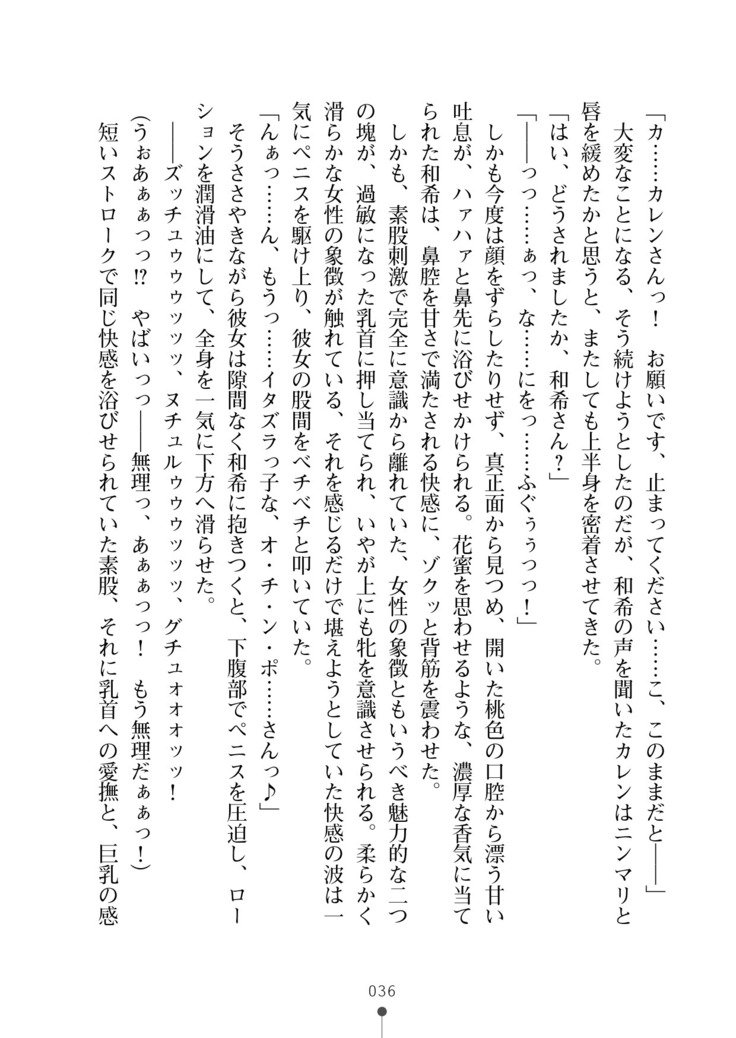 「カ……カレンさんっ！　お願いです、止まってください……こ、このままだと――」
　大変なことになる、そう続けようとしたのだが、和希の声を聞いたカレンはニンマリと
唇を緩めたかと思うと、またしても上半身を密着させてきた。
「はい、どうされましたか、和希さん？」
「――っっ……ぁっ、な……にをっ……ふぐぅぅっっ！」
　しかも今度は顔をずらしたりせず、真正面から見つめ、開いた桃色の口腔から漂う甘い
吐息が、ハァハァと鼻先に浴びせかけられる。花蜜を思わせるような、濃厚な香気に当て
られた和希は、鼻腔を甘さで満たされる快感に、ゾクッと背筋を震わせた。
　しかも、素股刺激で完全に意識から離れていた、女性の象徴ともいうべき魅力的な二つ
の塊が、過敏になった乳首に押し当てられ、いやが上にも牝を意識させられる。柔らかく
滑らかな女性の象徴が触れている、それを感じるだけで堪えようとしていた快感の波は一
気にペニスを駆け上り、彼女の股間をベチベチと叩いていた。
「んぁっ……ん、もうっ……イタズラっ子な、オ・チ・ン・ポ……さんっ♪」
　そうささやきながら彼女は隙間なく和希に抱きつくと、下腹部でペニスを圧迫し、ロー
ションを潤滑油にして、全身を一気に下方へ滑らせた。
　――ズッチュゥゥゥッッッ、ヌチュルゥゥゥッッッ、グチュォォォッッ！
（うぉあぁぁっっ!?　やばいっっ――無理っ、あぁぁっっ！　もう無理だぁぁっ！）
　短いストロークで同じ快感を浴びせられていた素股、それに乳首への愛撫と、巨乳の感
036